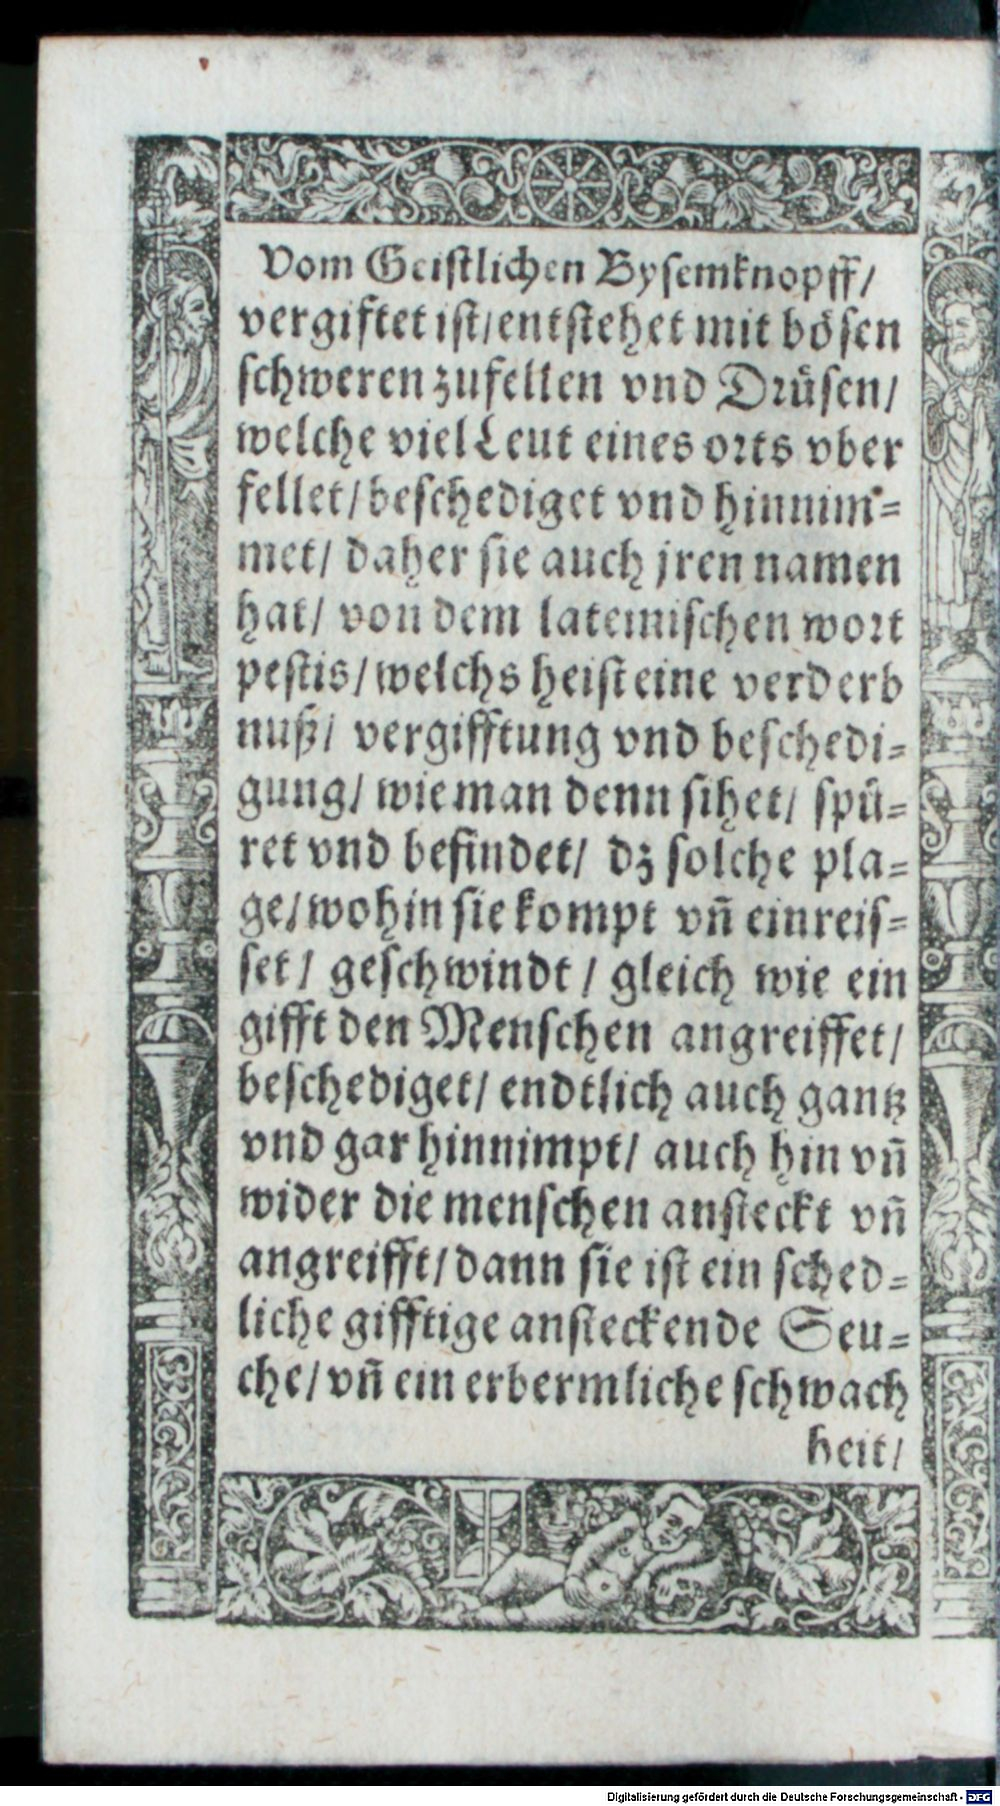 Vom Geistlichen Bysemknopff/
vergiftet ist/entstehet mit bösen
schweren zufellen vnd Drüsen/
welche viel Leut eines orts vber
fellet/beschediget vnd hinnim=
met/ daher sie auch jren namen
hat/ von dem lateinischen wort
pestis/welchs heist eine verderb
nuß/ vergifftung vnd beschedi=
gung/ wie man denn sihet/ spü=
ret vnd befindet/ dz solche pla=
ge/wohin sie kompt vñ einreis=
set/ geschwindt/ gleich wie ein
gifft den Menschen angreiffet/
beschediget/ endtlich auch gantz
vnd gar hinnimpt/ auch hin vñ
wider die menschen ansteckt vñ
angreifft/dann sie ist ein sched=
liche gifftige ansteckende Seu=
che/vñ ein erbermliche schwach
heit/
Digitalisierung gefördert durch die Deutsche Forschungsgemeinschaft - DFG